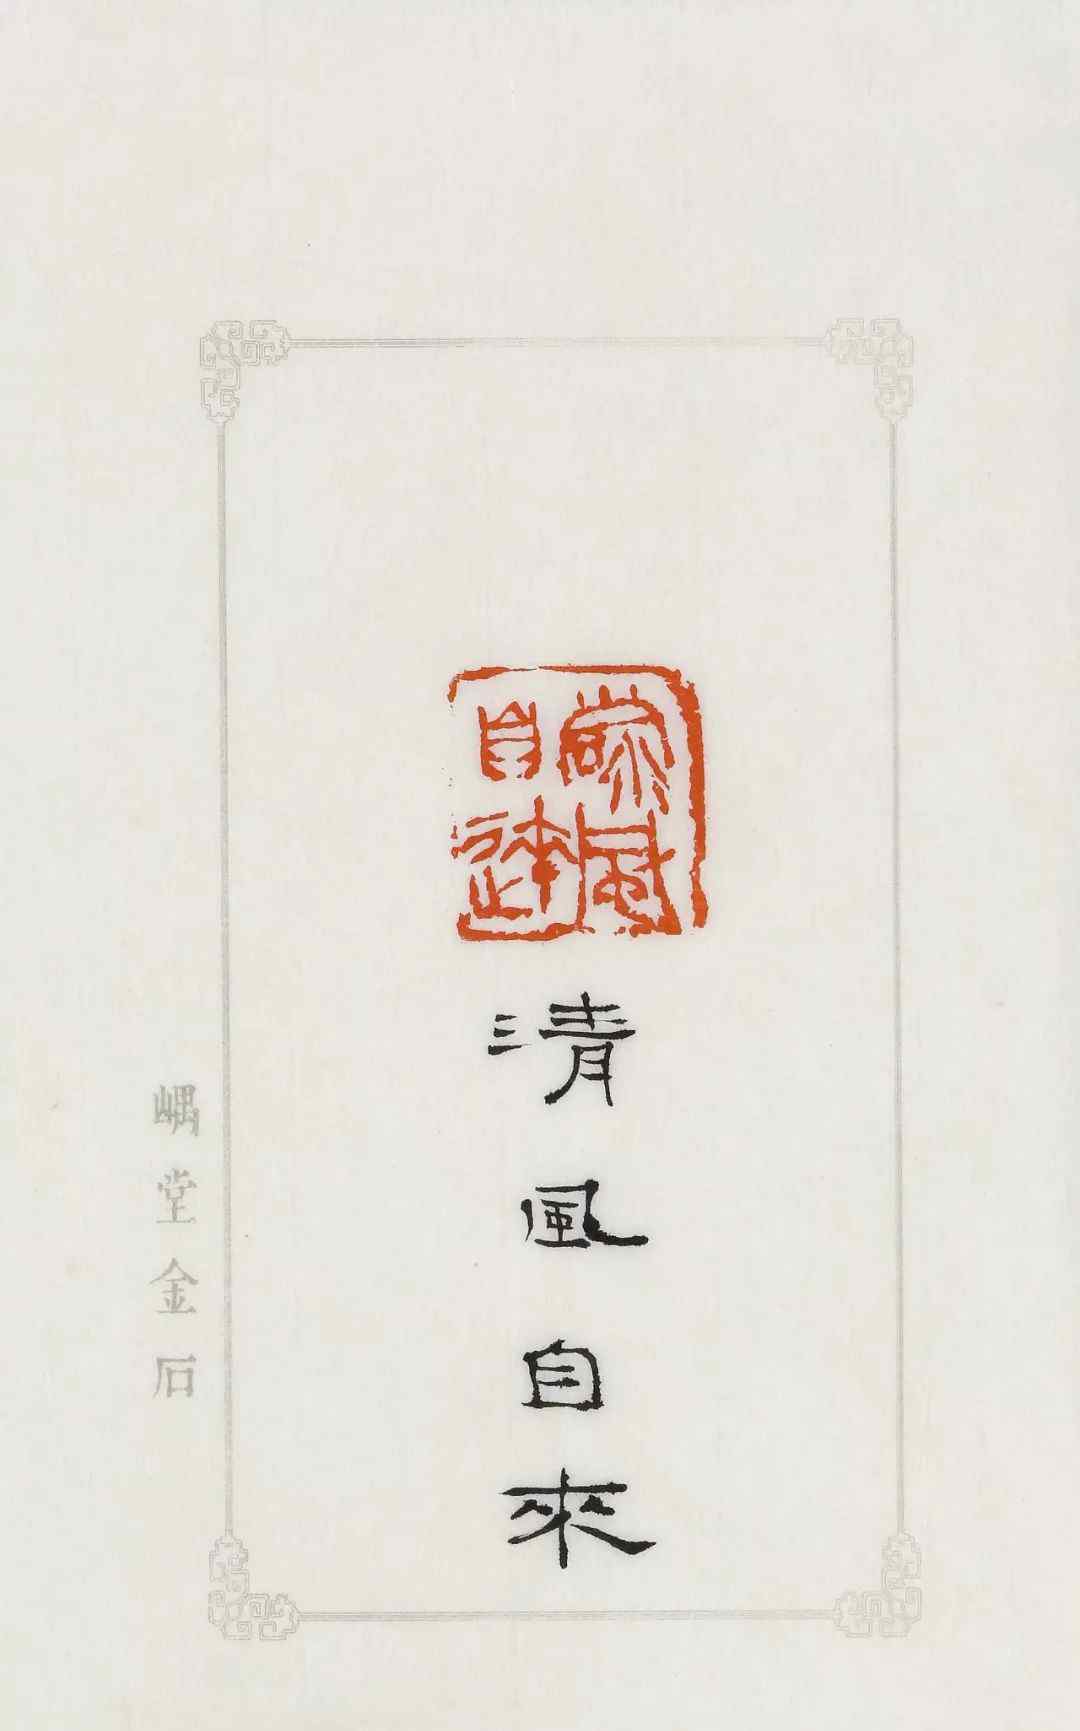 風
自來
清風自來
嵎堂金石